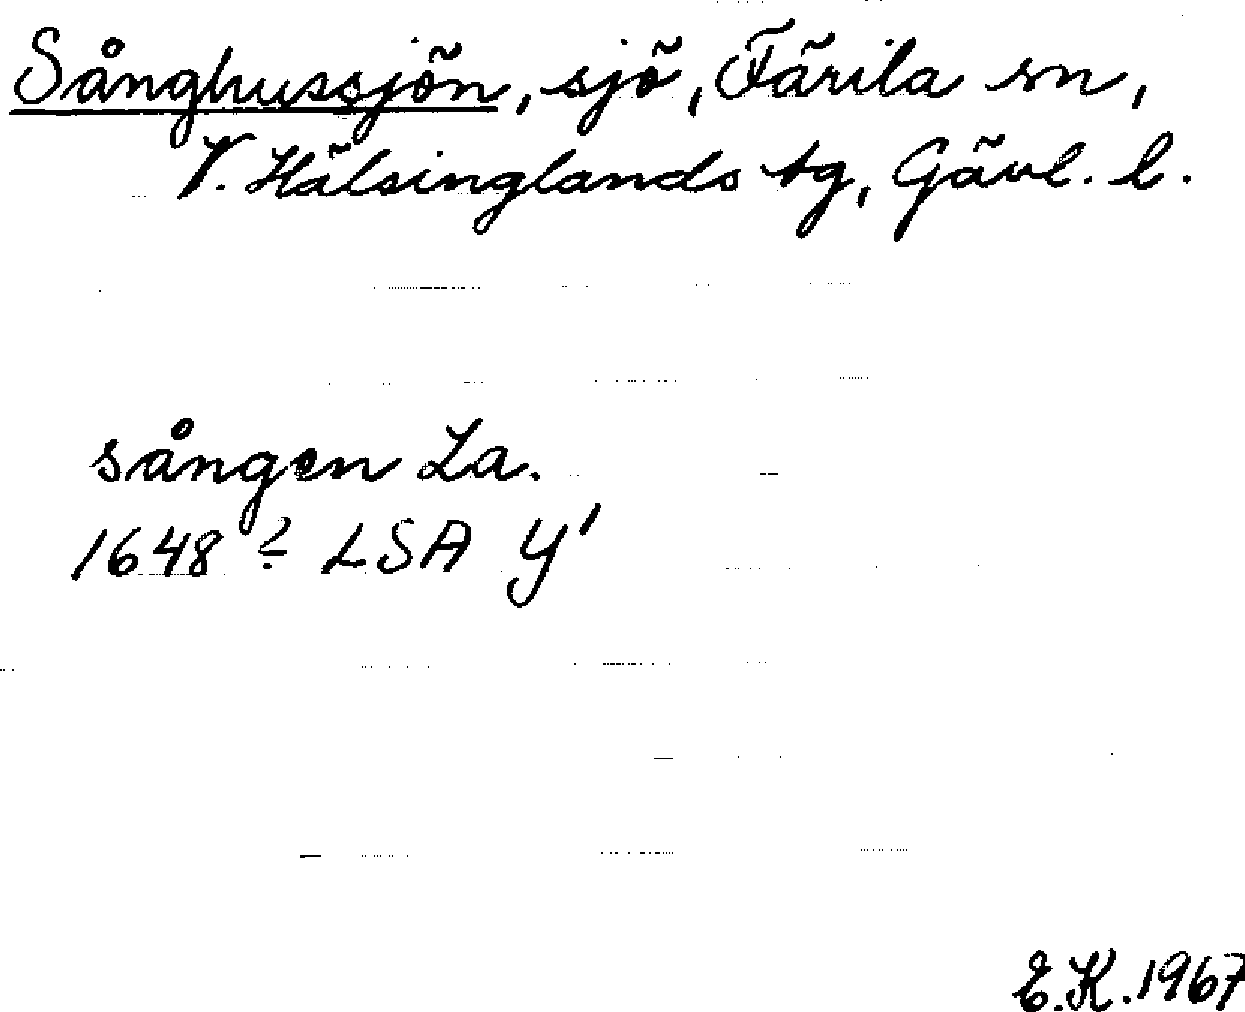 Sånghussjön, sjö, Färila sn,
V. Hälsinglands tg, Gävl. l.
sången La.
1648 ? LSA Y1
E.K. 1967